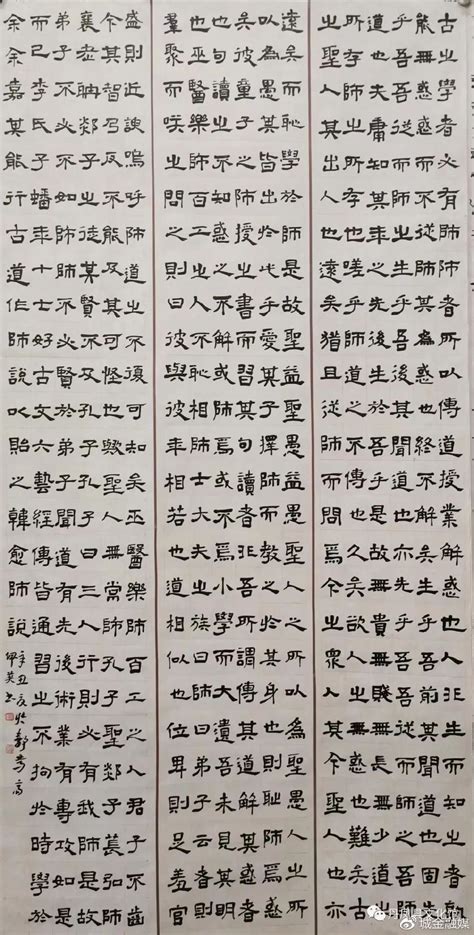 古之學者必有師師者所以傳道授業解惑也人非生而知之者孰
能無惑惑而不從師其為惑也終不解矣生乎吾前其聞道也固先
乎吾吾從而師之生乎吾後其聞道也亦先乎吾吾從而師之吾師
道也夫庸知其年之先後生於吾乎是故無貴無賤無長無少道之
所存師之所存也嗟乎師道之不傳也久矣欲人之無惑也難矣古
之聖人其出人也遠矣猶且從師而問焉今之眾人其下聖人也亦
遠矣而恥學於師是故聖益聖愚益愚聖人之所以為聖愚人之所
以為愚其皆出於此乎愛其子擇師而教之於其身也則恥師焉惑
矣彼童子之師授之書而習其句讀者非吾所謂傳其道解其惑者
也句讀之不知惑之不解或師焉或不焉小學而大遺吾未見其明
也巫醫樂師百工之人不恥相師士大夫之族曰師曰弟子云者則
羣聚而笑之問之則曰彼與彼年相若也道相似也位卑則足羞官
盛則近諛嗚呼師道之不復可知矣巫醫樂師百工之人君子不齒
今其智乃反不能及其可怪也歟聖人無常師孔子師郯子萇弘師
襄老聃郯子之徒其賢不及孔子孔子曰三人行則必有我師是故
弟子不必不如師師不必賢於弟子聞道有先後術業有專攻如是
而已李氏子蟠年十七好古文六藝經傳皆通習之不拘於時學於
余余嘉其能行古道作師說以貽之韓愈師說
辛丑
丹凤县文化馆
城金融媒